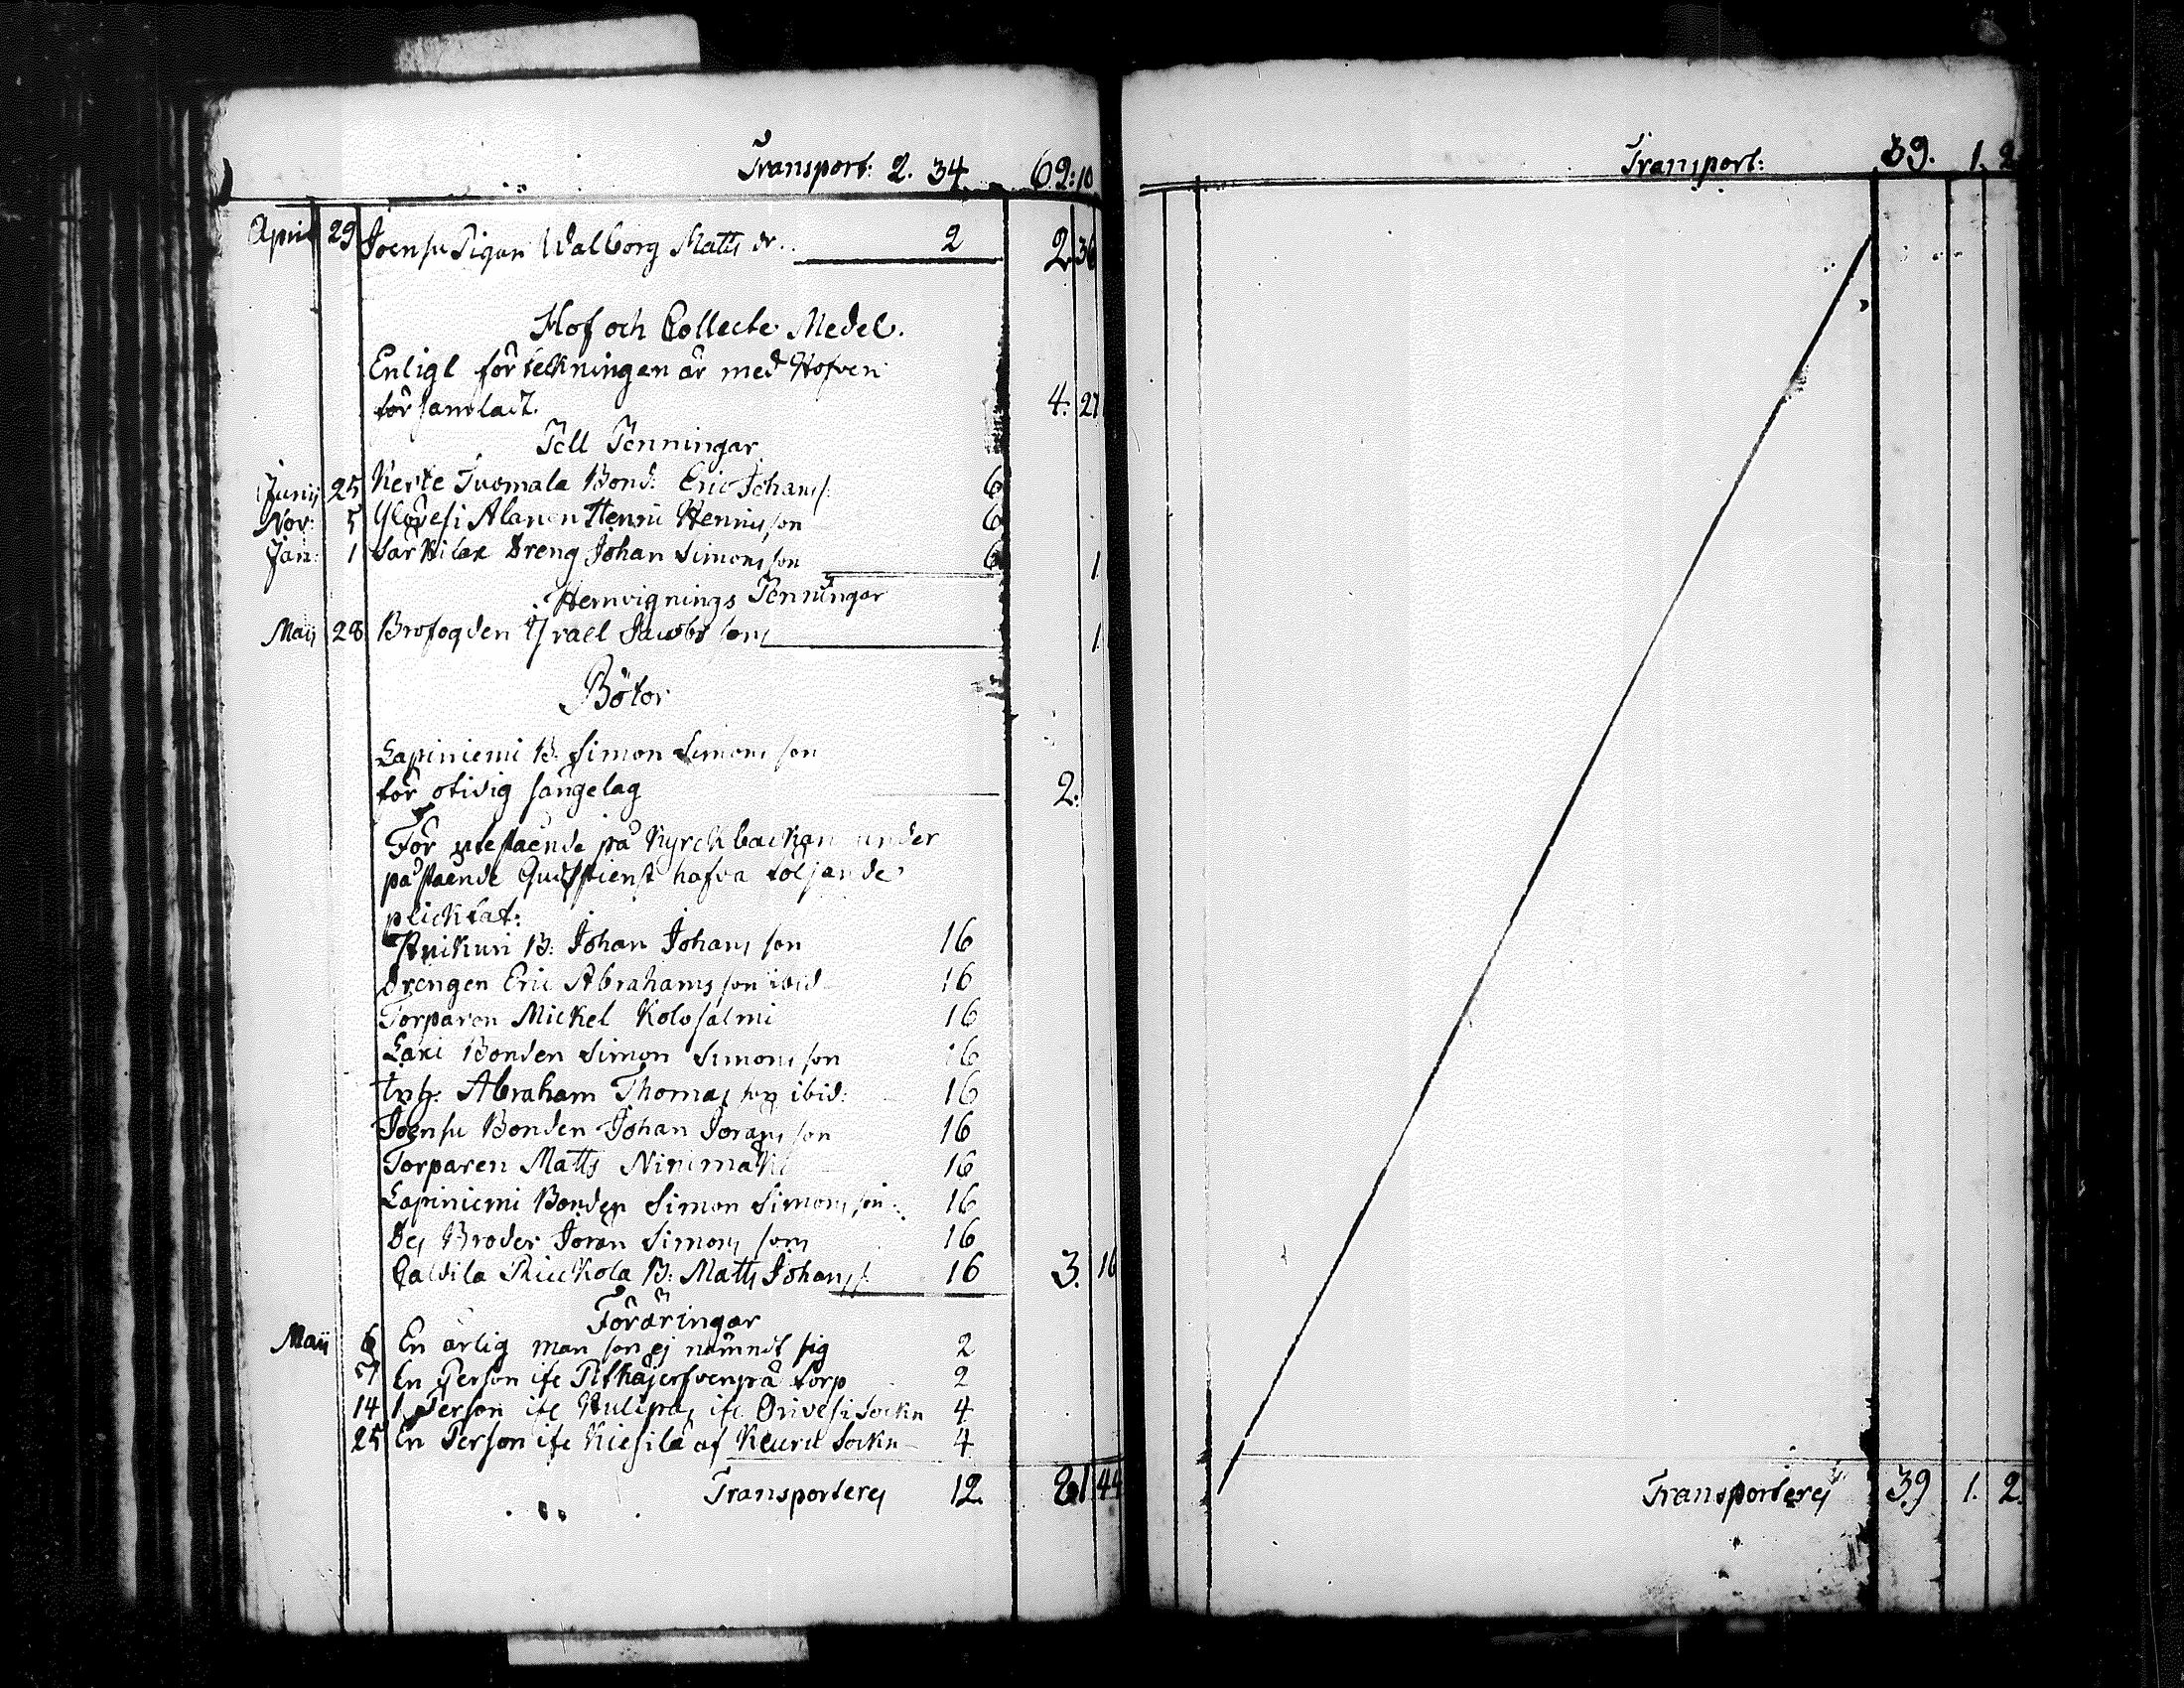 Transport: 2. 34 69:10
April 29 Joensu Pigan Walborg Matts dr. 2 2 36
Hof och Collecte Medel.
Enligt förtekningen är med Hofven
församladt. 4. 21
Tell Penningar
Junij 25 Kerte Tuomala Bond: Eric Johans s: 6
Nov: 5 Ylövesi Alanen Henric Henrics son 6
Jan: 1 Särkilax Dreng Johan Simons son 6 1.
Hemvignings Penningar
Maij 28 Brofogden Israel Jacobs son 1.
Böter
Lapiniemi B: Simon Simons son
för otidig sängelag 2:
För utestående på Kyrckbackan under
påstående Gudstienst hafva följande
plicktat:
B: Johan Johans son 16
Drengen Eric Abrahams son ibid 16
Torparen Mickel Kolosalmi 16
Laxi Bonden Simon Simons son 16
Inh: Abraham Thomas son ibid: 16
Joensu Bonden Johan Jorans son 16
Torparen Matts Ninimäki 16
Lapiniemi Bonden Simon Simons son 16
Des Broder Joran Simons son 16
B: Matts Johans s: 16 3. 16
Föräringar
Maij 6 En ärlig man som ej nämndt sig 2
7 En Person ifr. torp 2
14 1 Person ifr. ifr. Orivesi Sockn 4
25 En Person ifr. Kiesilä af Keuru Sockn 4
Transporteres 12. 81 44
Transport: 39. 1. 2
Transporteres 39 1. 2.